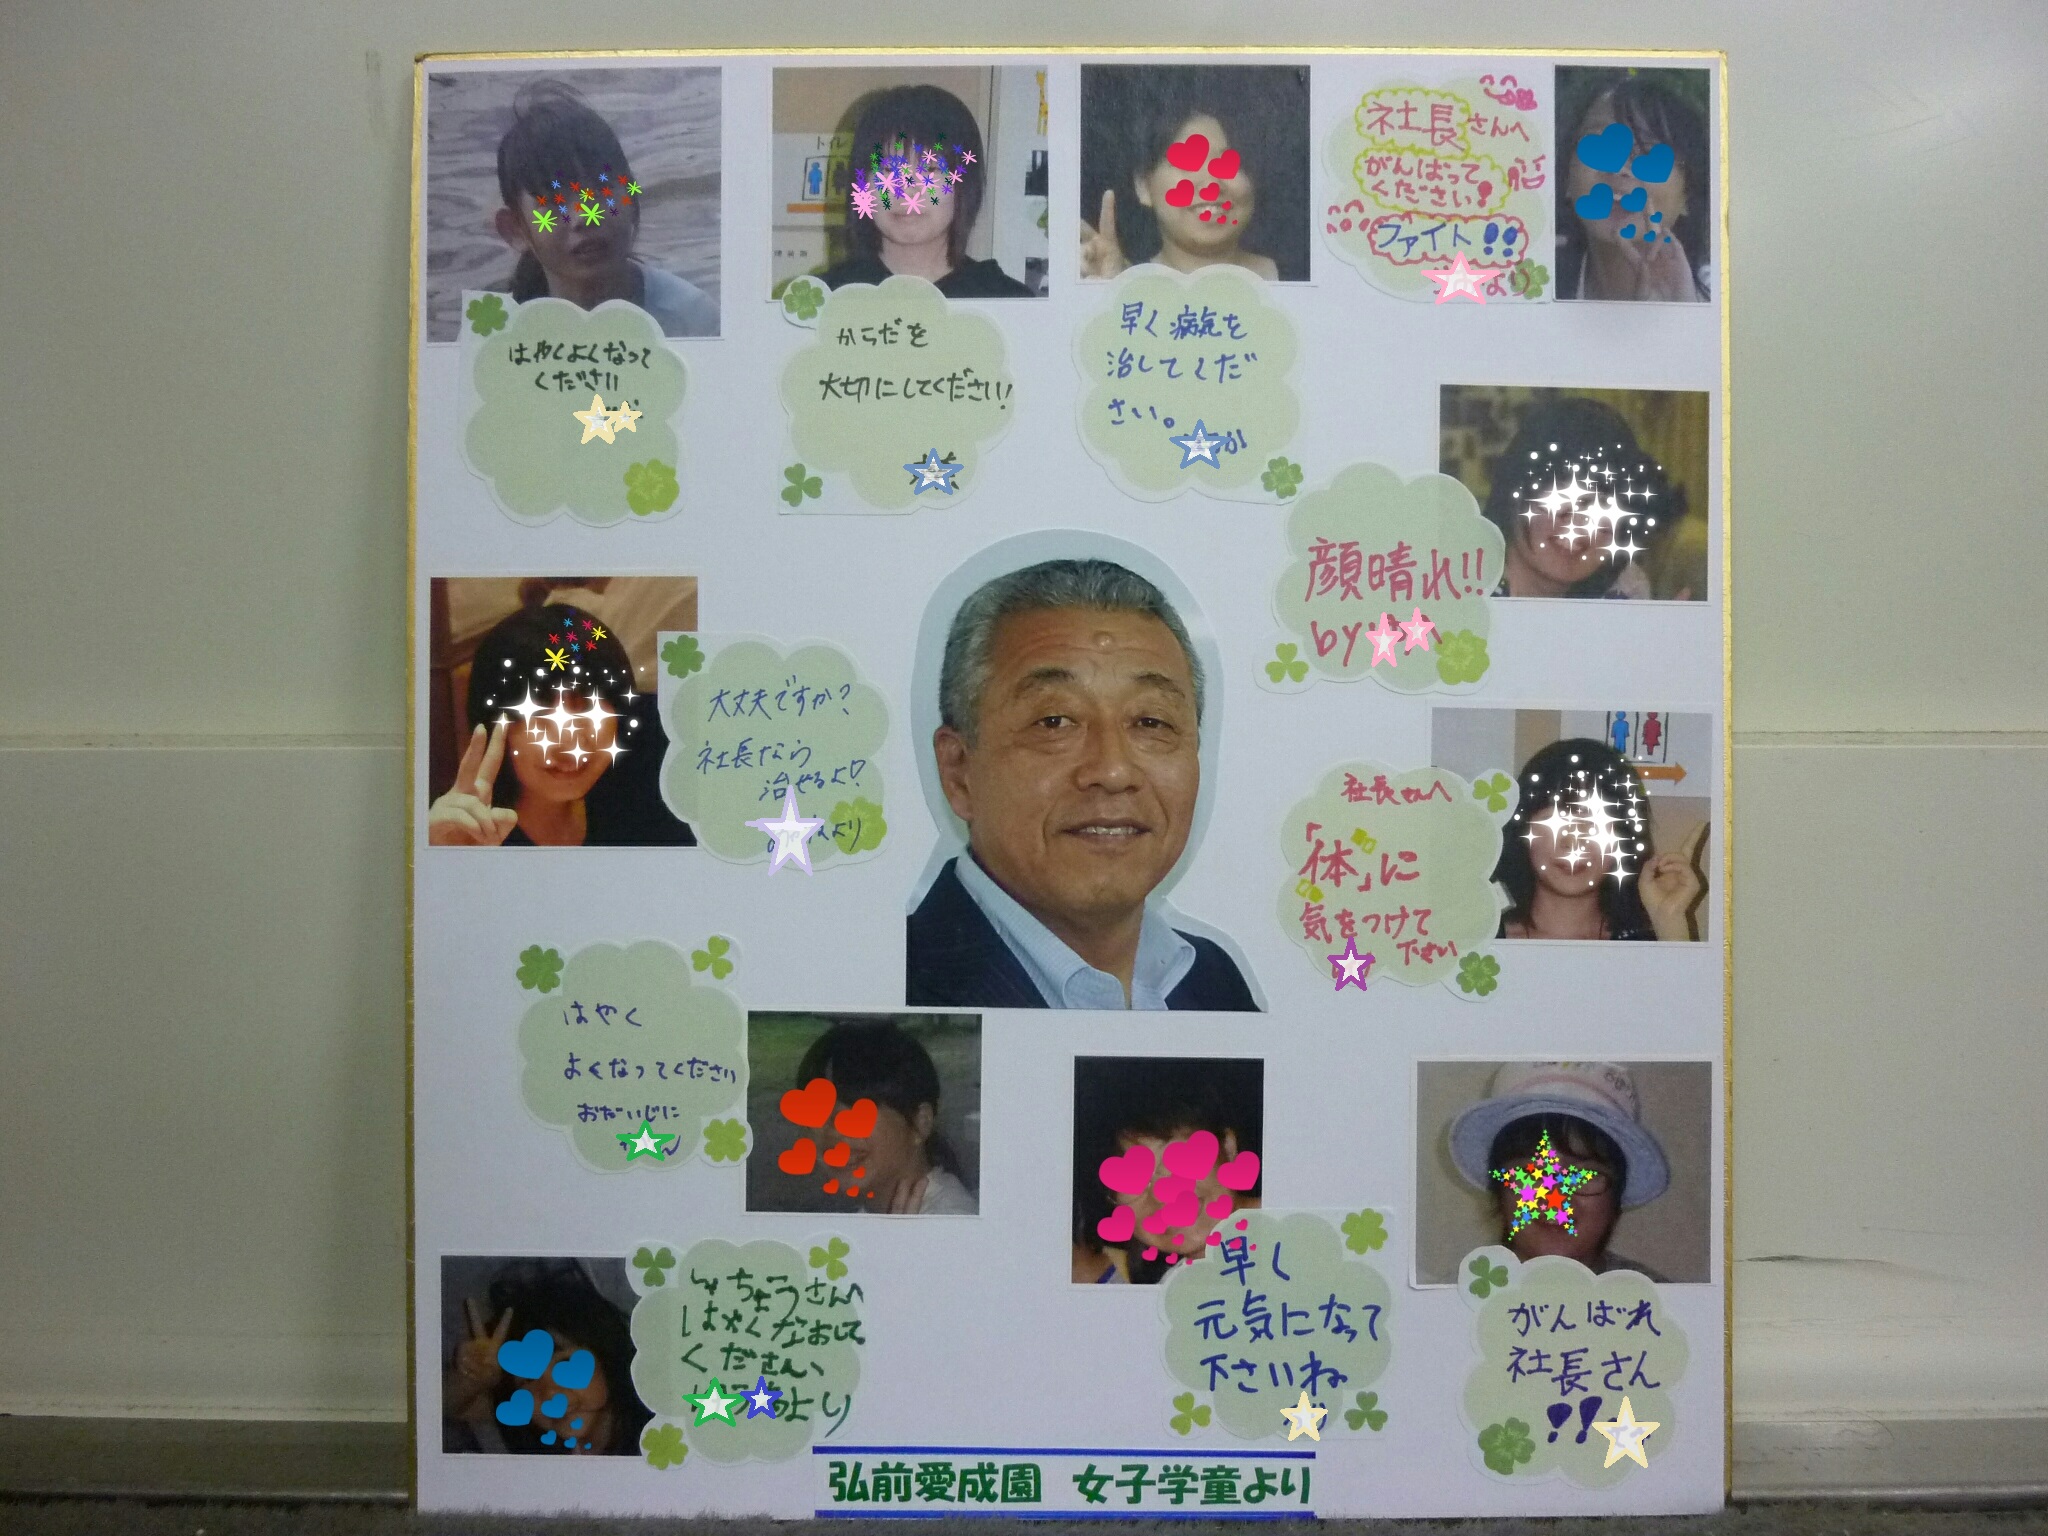 トイレ
はやくよくなって
ください
からだを
大切にしてください!
早く病気を
治してくだ
さい。
社長さんへ
がんばって
ください!
ファイト!!
より
顔晴れ!!
by
大丈夫ですか?
社長なら
治せるよ!
より
社長さんへ
「体」に
気をつけて
下さい
はやく
よくなってください
おだいじに
しゃちょうさんへ
はやくなおして
ください
より
早く
元気になって
下さいね
がんばれ
社長さん
!!
弘前愛成園 女子学童より